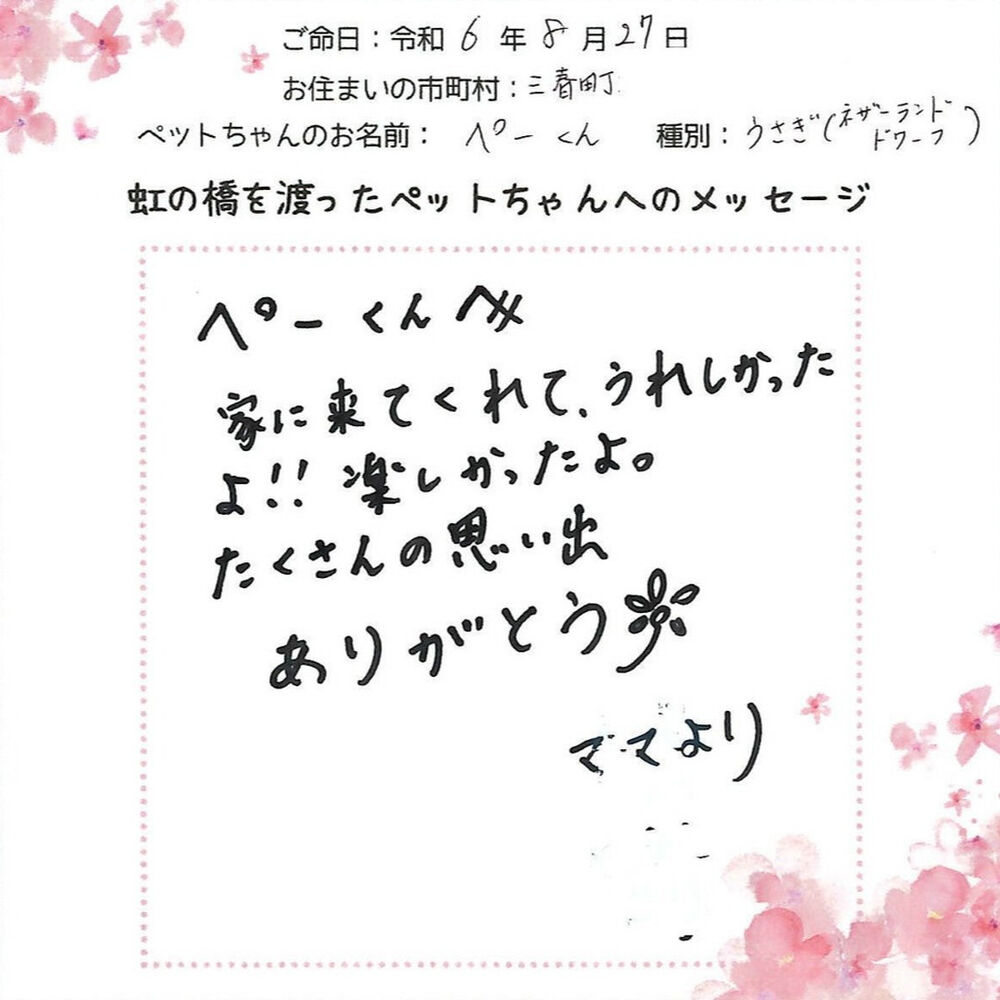 ご命日：令和 6 年 8 月 27 日
お住まいの市町村：三春町
ペットちゃんのお名前： ぺーくん 種別：うさぎ(ネザーランドドワーフ)
虹の橋を渡ったペットちゃんへのメッセージ
ぺーくんへ
家に来てくれて、うれしかった
よ!! 楽しかったよ。
たくさんの思い出
ありがとう
ママより